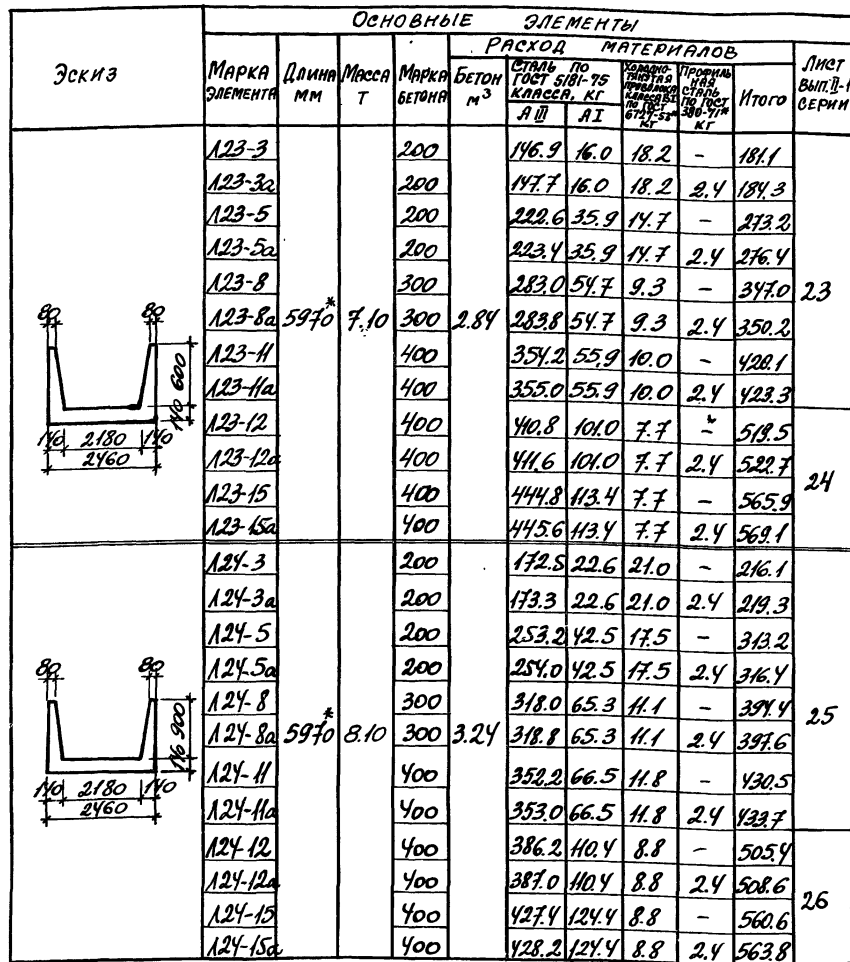 ОСНОВНЫЕ ЭЛЕМЕНТЫ
ЭСКИЗ
МАРКА ЭЛЕМЕНТА
ДЛИНА ММ
МАССА Т
МАРКА БЕТОНА
РАСХОД МАТЕРИАЛОВ
БЕТОН М³
СТАЛЬ ПО ГОСТ 5181-75 КЛАССА, КГ
А III А I
ХОЛОДНО-ТЯНУТАЯ ПРОВОЛОКА КЛАССА В I ПО ГОСТ 6727-53* КГ
ПРОФИЛЬНАЯ СТАЛЬ ПО ГОСТ 380-71* КГ
ИТОГО
ЛИСТ ВЫП. II-1 СЕРИИ
Л23-3 200 146.9 16.0 18.2 - 181.1
Л23-3а 200 147.7 16.0 18.2 2.4 184.3
Л23-5 200 222.6 35.9 14.7 - 273.2
Л23-5а 200 223.4 35.9 14.7 2.4 276.4
Л23-8 300 283.0 54.7 9.3 - 347.0 23
80 80 Л23-8а 5970* 7.10 300 2.84 283.8 54.7 9.3 2.4 350.2
Л23-11 400 354.2 55.9 10.0 - 420.1
600 Л23-11а 400 355.0 55.9 10.0 2.4 423.3
140 Л23-12 400 410.8 101.0 7.7 - 519.5
140 2180 140
2460 Л23-12а 400 411.6 101.0 7.7 2.4 522.7
24
Л23-15 400 444.8 113.4 7.7 - 565.9
Л23-15а 400 445.6 113.4 7.7 2.4 569.1
Л24-3 200 172.5 22.6 21.0 - 216.1
Л24-3а 200 173.3 22.6 21.0 2.4 219.3
Л24-5 200 253.2 42.5 17.5 - 313.2
80 80 Л24-5а 200 254.0 42.5 17.5 2.4 316.4
Л24-8 300 318.0 65.3 11.1 - 394.4
25
900 Л24-8а 5970* 8.10 300 3.24 318.8 65.3 11.1 2.4 397.6
Л24-11 400 352.2 66.5 11.8 - 430.5
140 2180 140
2460 Л24-11а 400 353.0 66.5 11.8 2.4 433.7
Л24-12 400 386.2 110.4 8.8 - 505.4
Л24-12а 400 387.0 110.4 8.8 2.4 508.6
26
Л24-15 400 427.4 124.4 8.8 - 560.6
Л24-15а 400 428.2 124.4 8.8 2.4 563.8